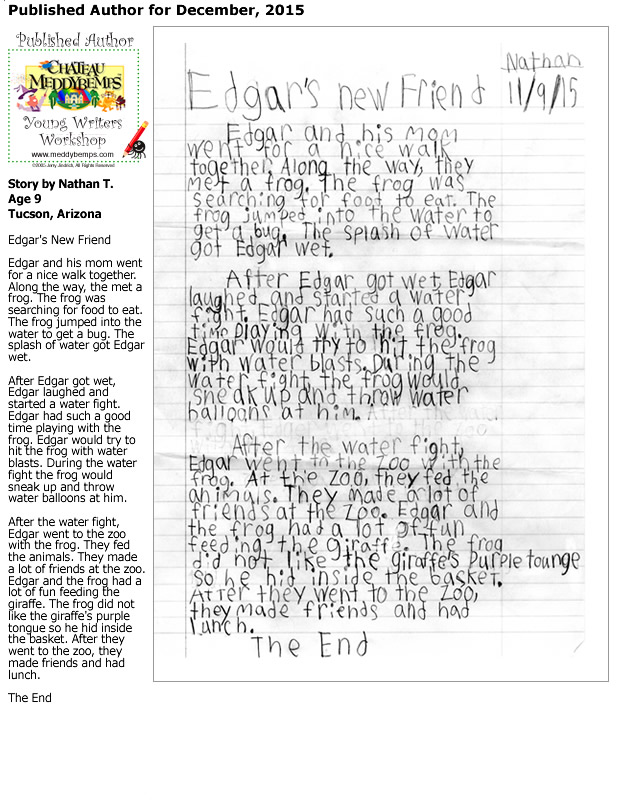 Published Author for December, 2015
Published Author
CHATEAU
MEDDYBEMPS
Young Writers
Workshop
www.meddybemps.com
©2005 Jerry Jindrich, All Rights Reserved
Story by Nathan T.
Age 9
Tucson, Arizona
Edgar's New Friend
Edgar and his mom went
for a nice walk together.
Along the way, the met a
frog. The frog was
searching for food to eat.
The frog jumped into the
water to get a bug. The
splash of water got Edgar
wet.
After Edgar got wet,
Edgar laughed and
started a water fight.
Edgar had such a good
time playing with the
frog. Edgar would try to
hit the frog with water
blasts. During the water
fight the frog would
sneak up and throw
water balloons at him.
After the water fight,
Edgar went to the zoo
with the frog. They fed
the animals. They made
a lot of friends at the zoo.
Edgar and the frog had a
lot of fun feeding the
giraffe. The frog did not
like the giraffe's purple
tongue so he hid inside
the basket. After they
went to the zoo, they
made friends and had
lunch.
The End
Nathan
11/9/15
Edgar's new Friend
Edgar and his mom
went for a nice walk
together. Along the way, they
met a frog. The frog was
searching for food to eat. The
frog jumped into the water to
get a bug. The splash of water
got Edgar wet.
After Edgar got wet, Edgar
laughed and started a water
fight. Edgar had such a good
time playing with the frog.
Edgar would try to hit the frog
with water blasts. During the
water fight the frog would
sneak up and throw water
balloons at him.
After the water fight,
Edgar went to the zoo with the
frog. At the zoo, they fed the
animals. They made a lot of
friends at the zoo. Edgar and
the frog had a lot of fun
feeding the giraffe. The frog
did not like the giraffe's purple tounge
so he hid inside the basket.
After they went to the zoo,
they made friends and had
lunch.
The End